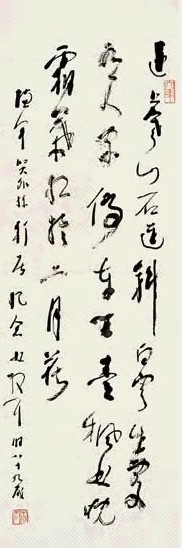 遠上寒山石逕斜白雲生處
有人家停車坐愛楓林晚
霜葉紅於二月花
新居紀念林散耳時八十九歲